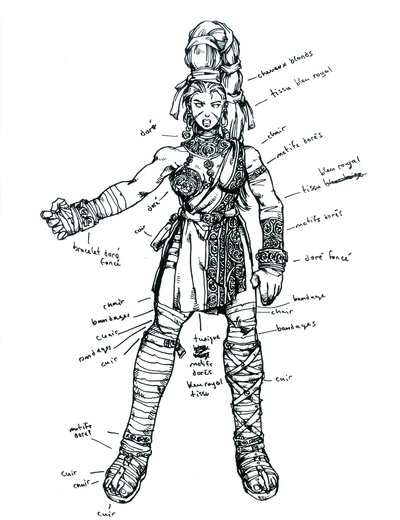 cheveux blonds
tissu bleu royal
doré
chair
motifs dorés
bleu royal
tissu
doré
cuir
motifs dorés
bracelet doré
foncé
doré foncé
chair
bandages
cuir
bandages
cuir
bandage
chair
bandages
tunique
motifs
dorés
bleu royal
tissu
cuir
motifs
dorés
cuir
chair
cuir